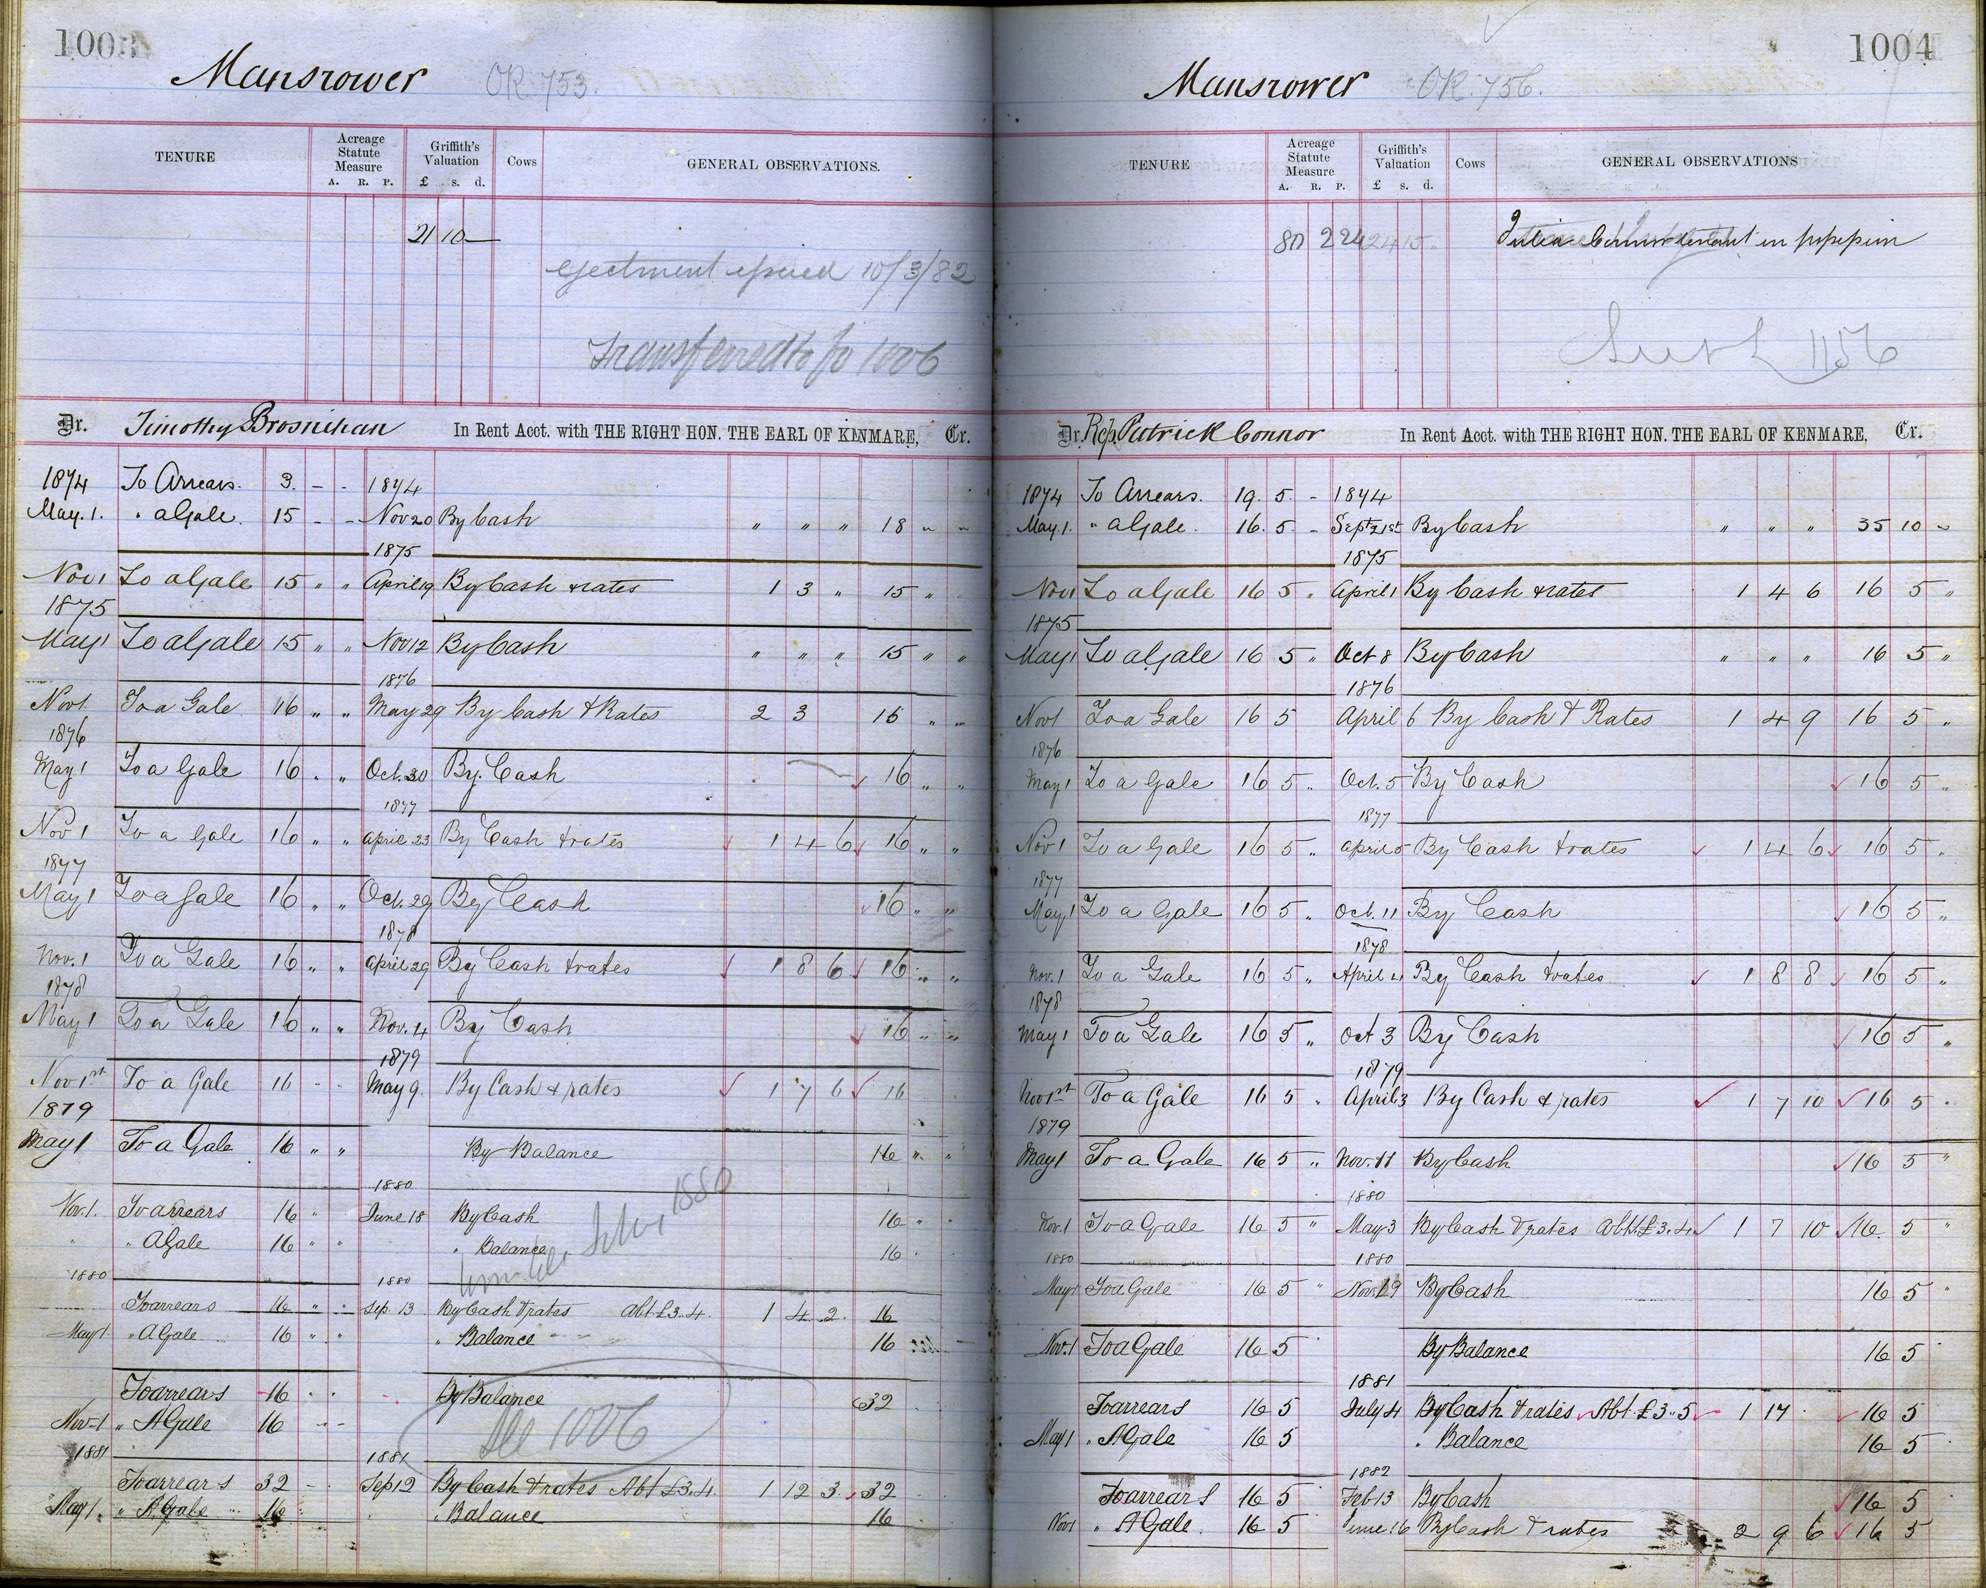 1003
Mansrower OK. 753.
TENURE
Acreage Statute Measure
A. R. P.
Griffith's Valuation
£ s. d.
Cows
GENERAL OBSERVATIONS.
21 10 —
Ejectment 10/3/82
Transferred to fo 1006
Dr. Timothy Brosnihan In Rent Acct. with THE RIGHT HON. THE EARL OF KENMARE, Cr.
1874 To Arrears. 3 - - 1874
May. 1. " a Gale. 15 - - Nov 20 By Cash " " " 18 " "
1875
Nov 1 To a Gale 15 " " April 19 By Cash & rates 1 3 " 15 " "
1875
May 1 To a Gale 15 " " Nov 12 By Cash " " " 15 " "
1876
Nov 1 To a Gale 16 " " May 29 By Cash & Rates 2 3 16 " "
1876
May 1 To a Gale 16 " " Oct. 30 By Cash 16 " "
1877
Nov 1 To a Gale 16 " " April 23 By Cash & rates 1 4 6 16 " "
1877
May 1 To a Gale 16 " " Oct. 29 By Cash 16 " "
1878
Nov. 1 To a Gale 16 " " April 29 By Cash & rates 1 8 6 16 " "
1878
May 1 To a Gale 16 " " Nov. 4 By Cash 16 " "
1879
Nov 1st To a Gale 16 - - May 9. By Cash & rates 1 7 6 16
1879
May 1 To a Gale 16 " " By Balance 16 " "
1880
Nov. 1. To arrears 16 " June 18 By Cash 16 "
" " A Gale 16 " " " Balance 16
1880
1880 1880
To arrears 16 " " Sep. 13 By Cash & rates Abt. £3.4 1 4 2 16
May 1 " A Gale 16 " " " Balance 16
To arrears 16 By Balance 32
Nov. 1 " A Gale 16 - -
See 1006
1881 1881
To arrears 32 Sep 12 By Cash & rates Abt £3.4. 1 12 3 32
May 1. " A Gale 16 " Balance 16
1004
Mansrower OK. 756.
TENURE
Acreage Statute Measure
A. R. P.
Griffith's Valuation
£ s. d.
Cows
GENERAL OBSERVATIONS
80 2 24 24 15 Julia Connor tenant in possession
1156
Dr. Rep. Patrick Connor In Rent Acct. with THE RIGHT HON. THE EARL OF KENMARE, Cr.
1874 To Arrears. 19. 5. - 1874
May. 1. " a Gale. 16. 5. - Sept 21st By Cash " " " 35 10 "
1875
Nov 1 To a Gale 16 5 " April 1 By Cash & rates 1 4 6 16 5 "
1875
May 1 To a Gale 16 5 " Oct 8 By Cash " " " 16 5 "
1876
Nov 1 To a Gale 16 5 April 6 By Cash & Rates 1 4 9 16 5 "
1876
May 1 To a Gale 16 5 " Oct. 5 By Cash 16 5 "
1877
Nov 1 To a Gale 16 5 " April 5 By Cash & rates 1 4 6 16 5 "
1877
May 1 To a Gale 16 5 " Oct. 11 By Cash 16 5 "
1878
Nov. 1 To a Gale 16 5 " April 4 By Cash & rates 1 8 8 16 5 "
1878
May 1 To a Gale 16 5 " Oct 3 By Cash 16 5 "
1879
Nov 1st To a Gale 16 5 " April 3 By Cash & rates 1 7 10 16 5 "
1879
May 1 To a Gale 16 5 " Nov. 11 By Cash 16 5 "
1880
Nov. 1 To a Gale 16 5 " May 3 By Cash & rates Abt. £3.4 1 7 10 16. 5 "
1880 1880
May 1 To a Gale 16 5 " Nov. 19 By Cash 16 5 "
Nov. 1 To a Gale 16 5 By Balance 16 5
1881
To arrears 16 5 July 4 By Cash & rates Abt. £3.5 1 17 16 5
May 1 " A Gale 16 5 " Balance 16 5
1882
To arrears 16 5 Feb 13 By Cash 16 5
Nov 1 " A Gale. 16 5 June 16 By Cash & rates 2 9 6 16 5